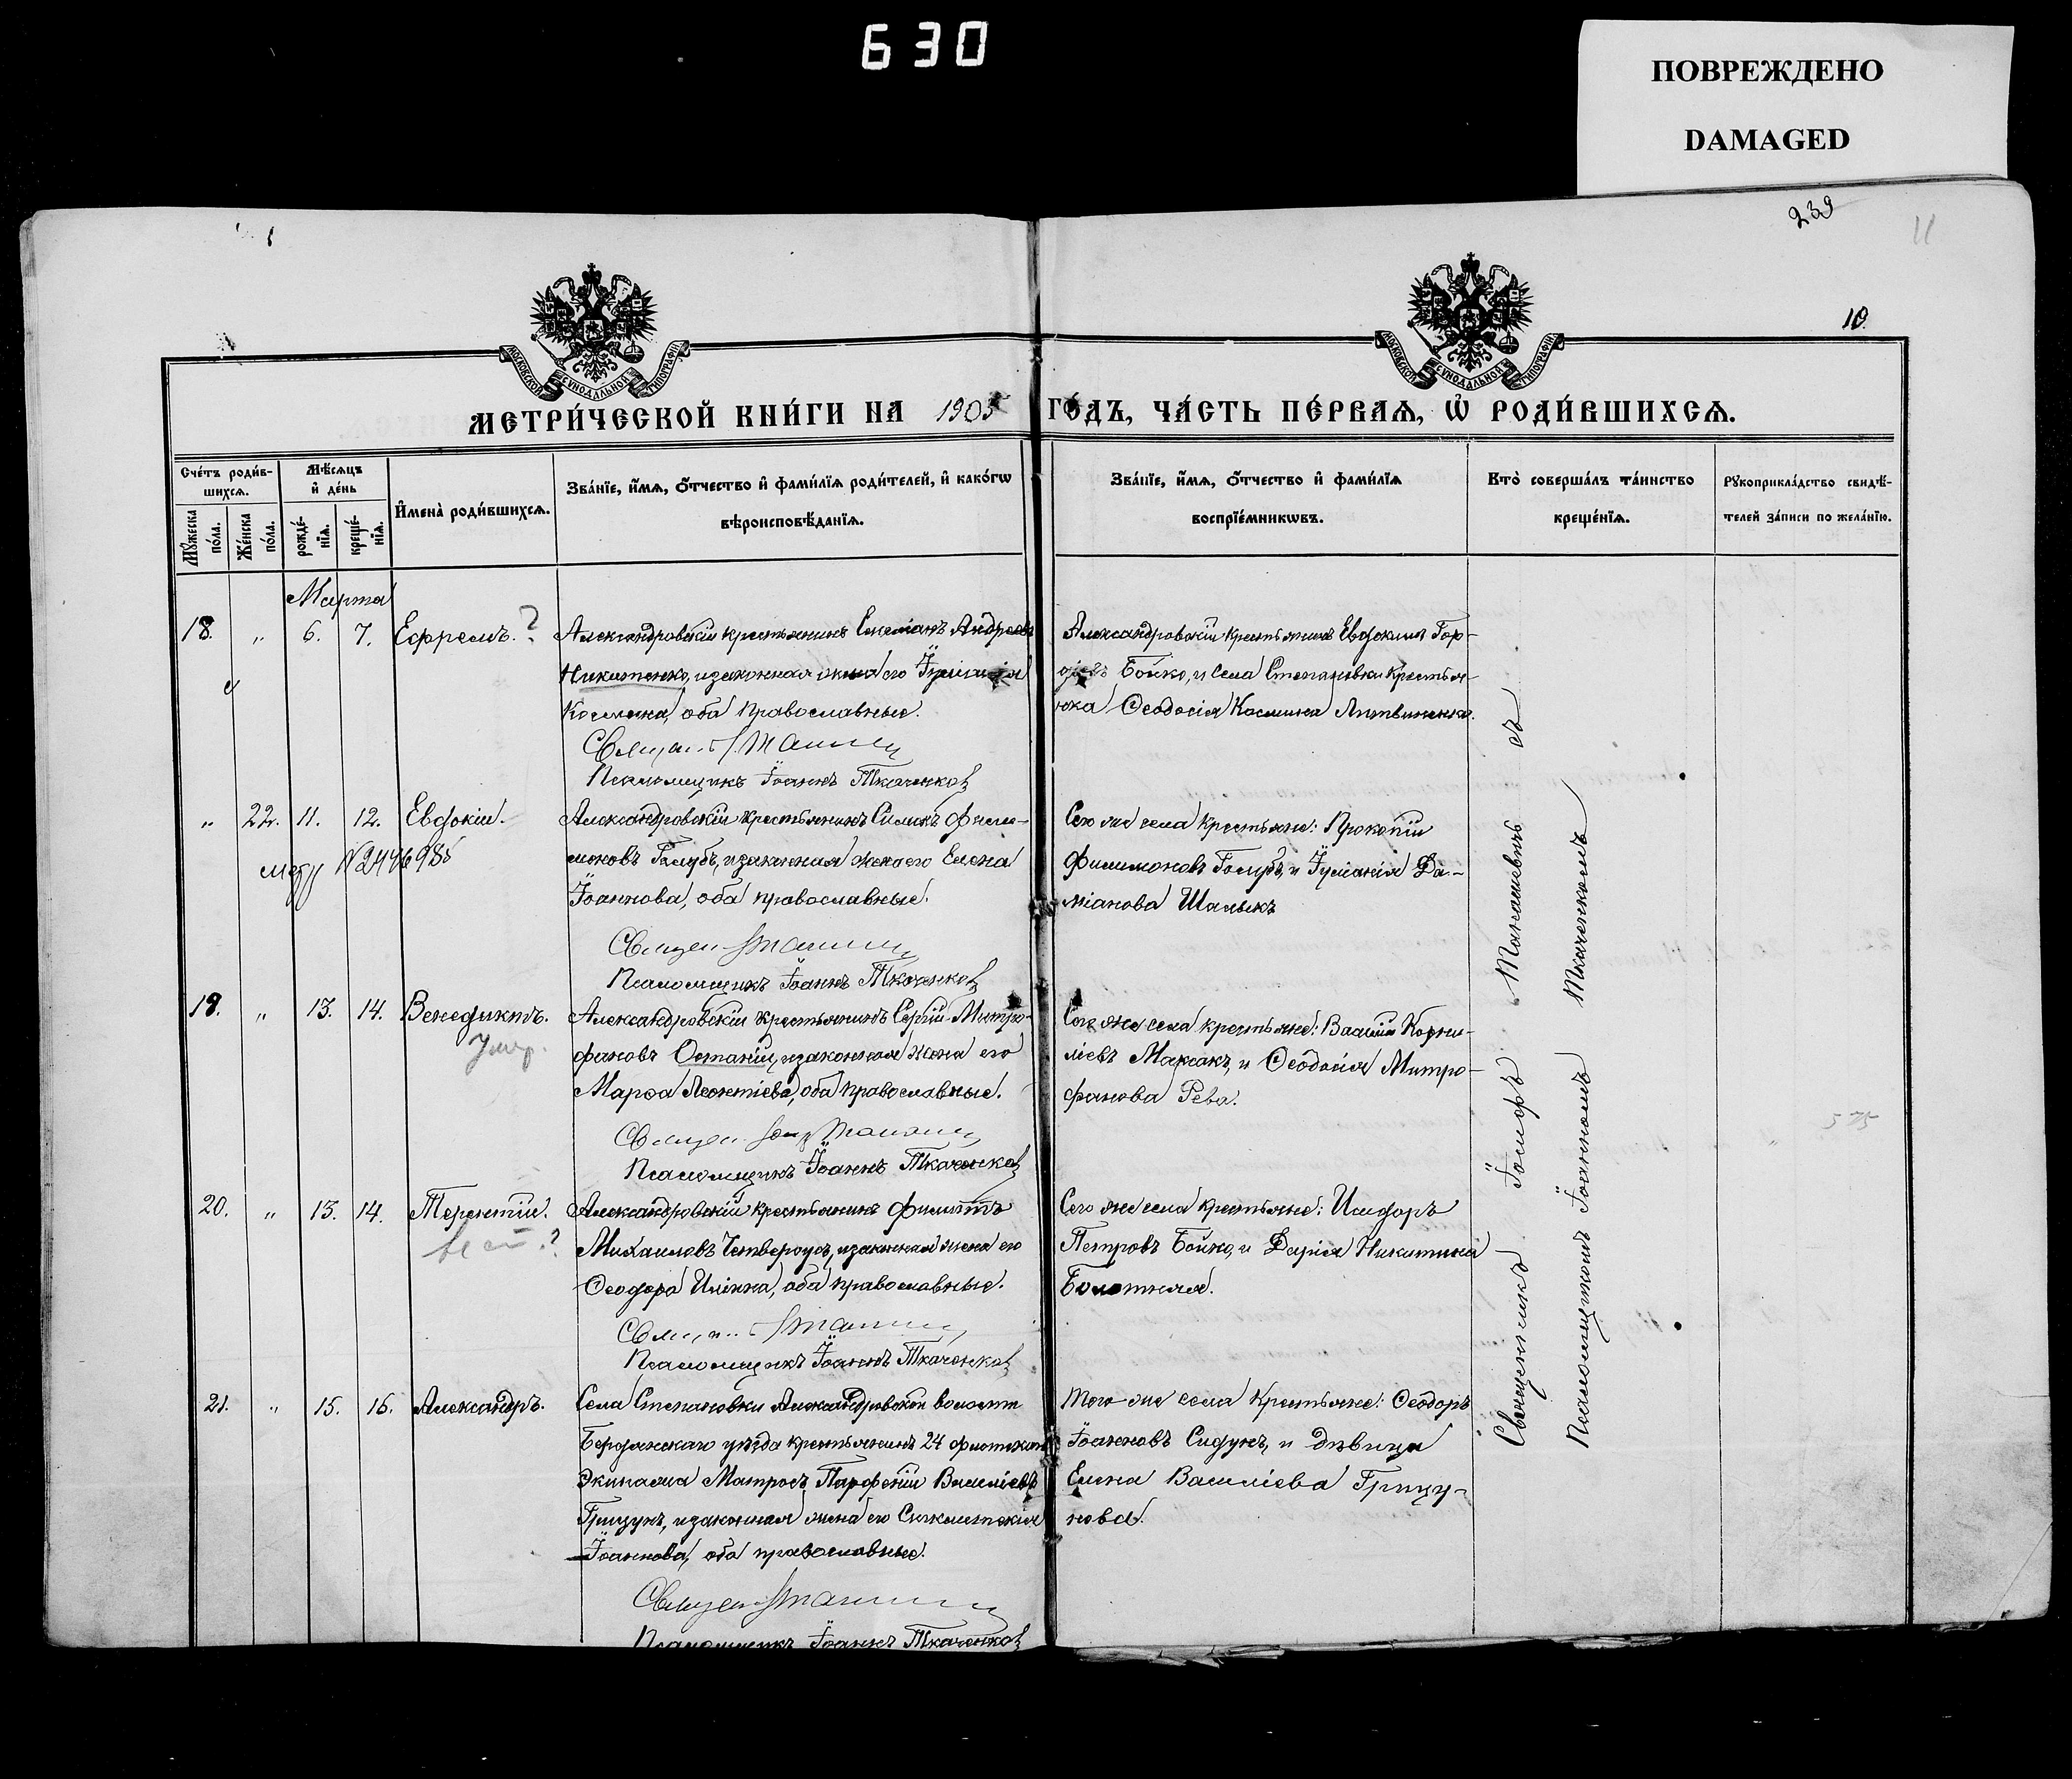 630
ПОВРЕЖДЕНО
DAMAGED
239
11
10.
МОСКОВСКОЙ СѴНОДАЛЬНОЙ ТИПОГРАФІИ
МОСКОВСКОЙ СѴНОДАЛЬНОЙ ТИПОГРАФІИ
МЕТРИ́ЧЕСКОЙ КНИ́ГИ НА 1905 ГО́ДЪ, ЧА́СТЬ ПЕ́РВАѦ, Ѡ҆ РОДИ́ВШИХСѦ.
Сче́тъ роди́в-
шихсѧ.
Мꙋ́жеска по́ла.
Же́нска по́ла.
Мѣ́сѧцъ
и҆ де́нь
рожде́-
нїѧ.
креще́-
нїѧ.
И҆мена̀ роди́вшихсѧ.
Зва́нїе, и҆́мѧ, ѻ҆́тчество и҆ фами́лїѧ роди́телей, и҆ како́гѡ
вѣроисповѣ́данїѧ.
Зва́нїе, и҆́мѧ, ѻ҆́тчество и҆ фами́лїѧ
воспрїе́мникѡвъ.
Кто̀ соверша́лъ та́инство
креще́нїѧ.
Рꙋкоприкла́дство свидѣ́-
телей за́писи по жела́нїю.
Марта
18. " 6. 7. Ефремъ. ?
Александровскій крестьянинъ Емеліанъ Андреевъ
Никитенко, и законная жена его Іуліанія
Космина, оба православные.
Псаломщикъ Іоаннъ Ткаченко
Александровскій крестьянинъ Евдокимъ Гор-
діевъ Бойко, и села Степановки крестьян-
ка Ѳеодосія Космина Литвиненко.
" 22. 11. 12. Евдокія.
№ 2446985
Александровскій крестьянинъ Симонъ Фили-
моновъ Голубъ, и законная жена его Елена
Іоаннова, оба православные.
Псаломщикъ Іоаннъ Ткаченко
Сего же села крестьяне: Прокопій
Филимоновъ Голубъ, и Іуліанія Да-
міанова Шалыкъ
19. " 13. 14. Венедиктъ.
Умер.
Александровскій крестьянинъ Сергій Митро-
фановъ Остапій, и законная жена его
Марѳа Леонтіева, оба православные.
Псаломщикъ Іоаннъ Ткаченко
Сего же села крестьяне: Василій Корни-
ліевъ Максакъ, и Ѳеодосія Митро-
фанова Рева.
575
20. " 13. 14. Терентій.
?
Александровскій крестьянинъ Филиппъ
Михаиловъ Четвероусъ, и законная жена его
Ѳеодора Ильина, оба православные.
Псаломщикъ Іоаннъ Ткаченко
Сего же села крестьяне: Исидоръ
Петровъ Бойко, и Дарія Никитина
Болотная.
21. " 15. 16. Александръ.
Села Степановки Александровской волости
Бердянскаго уѣзда крестьянинъ 24 флотскаго
экипажа Матросъ Парфеній Василіевъ
Грицунъ, и законная жена его Синклитикія
Іоаннова, оба православные.
Псаломщикъ Іоаннъ Ткаченко
Того же села крестьяне: Ѳеодоръ
Іоанновъ Сидунъ, и дѣвица
Елена Василіева Грицу-
нова.
Священникъ Іосифъ съ
Псаломщикомъ Іоанномъ Ткаченкомъ